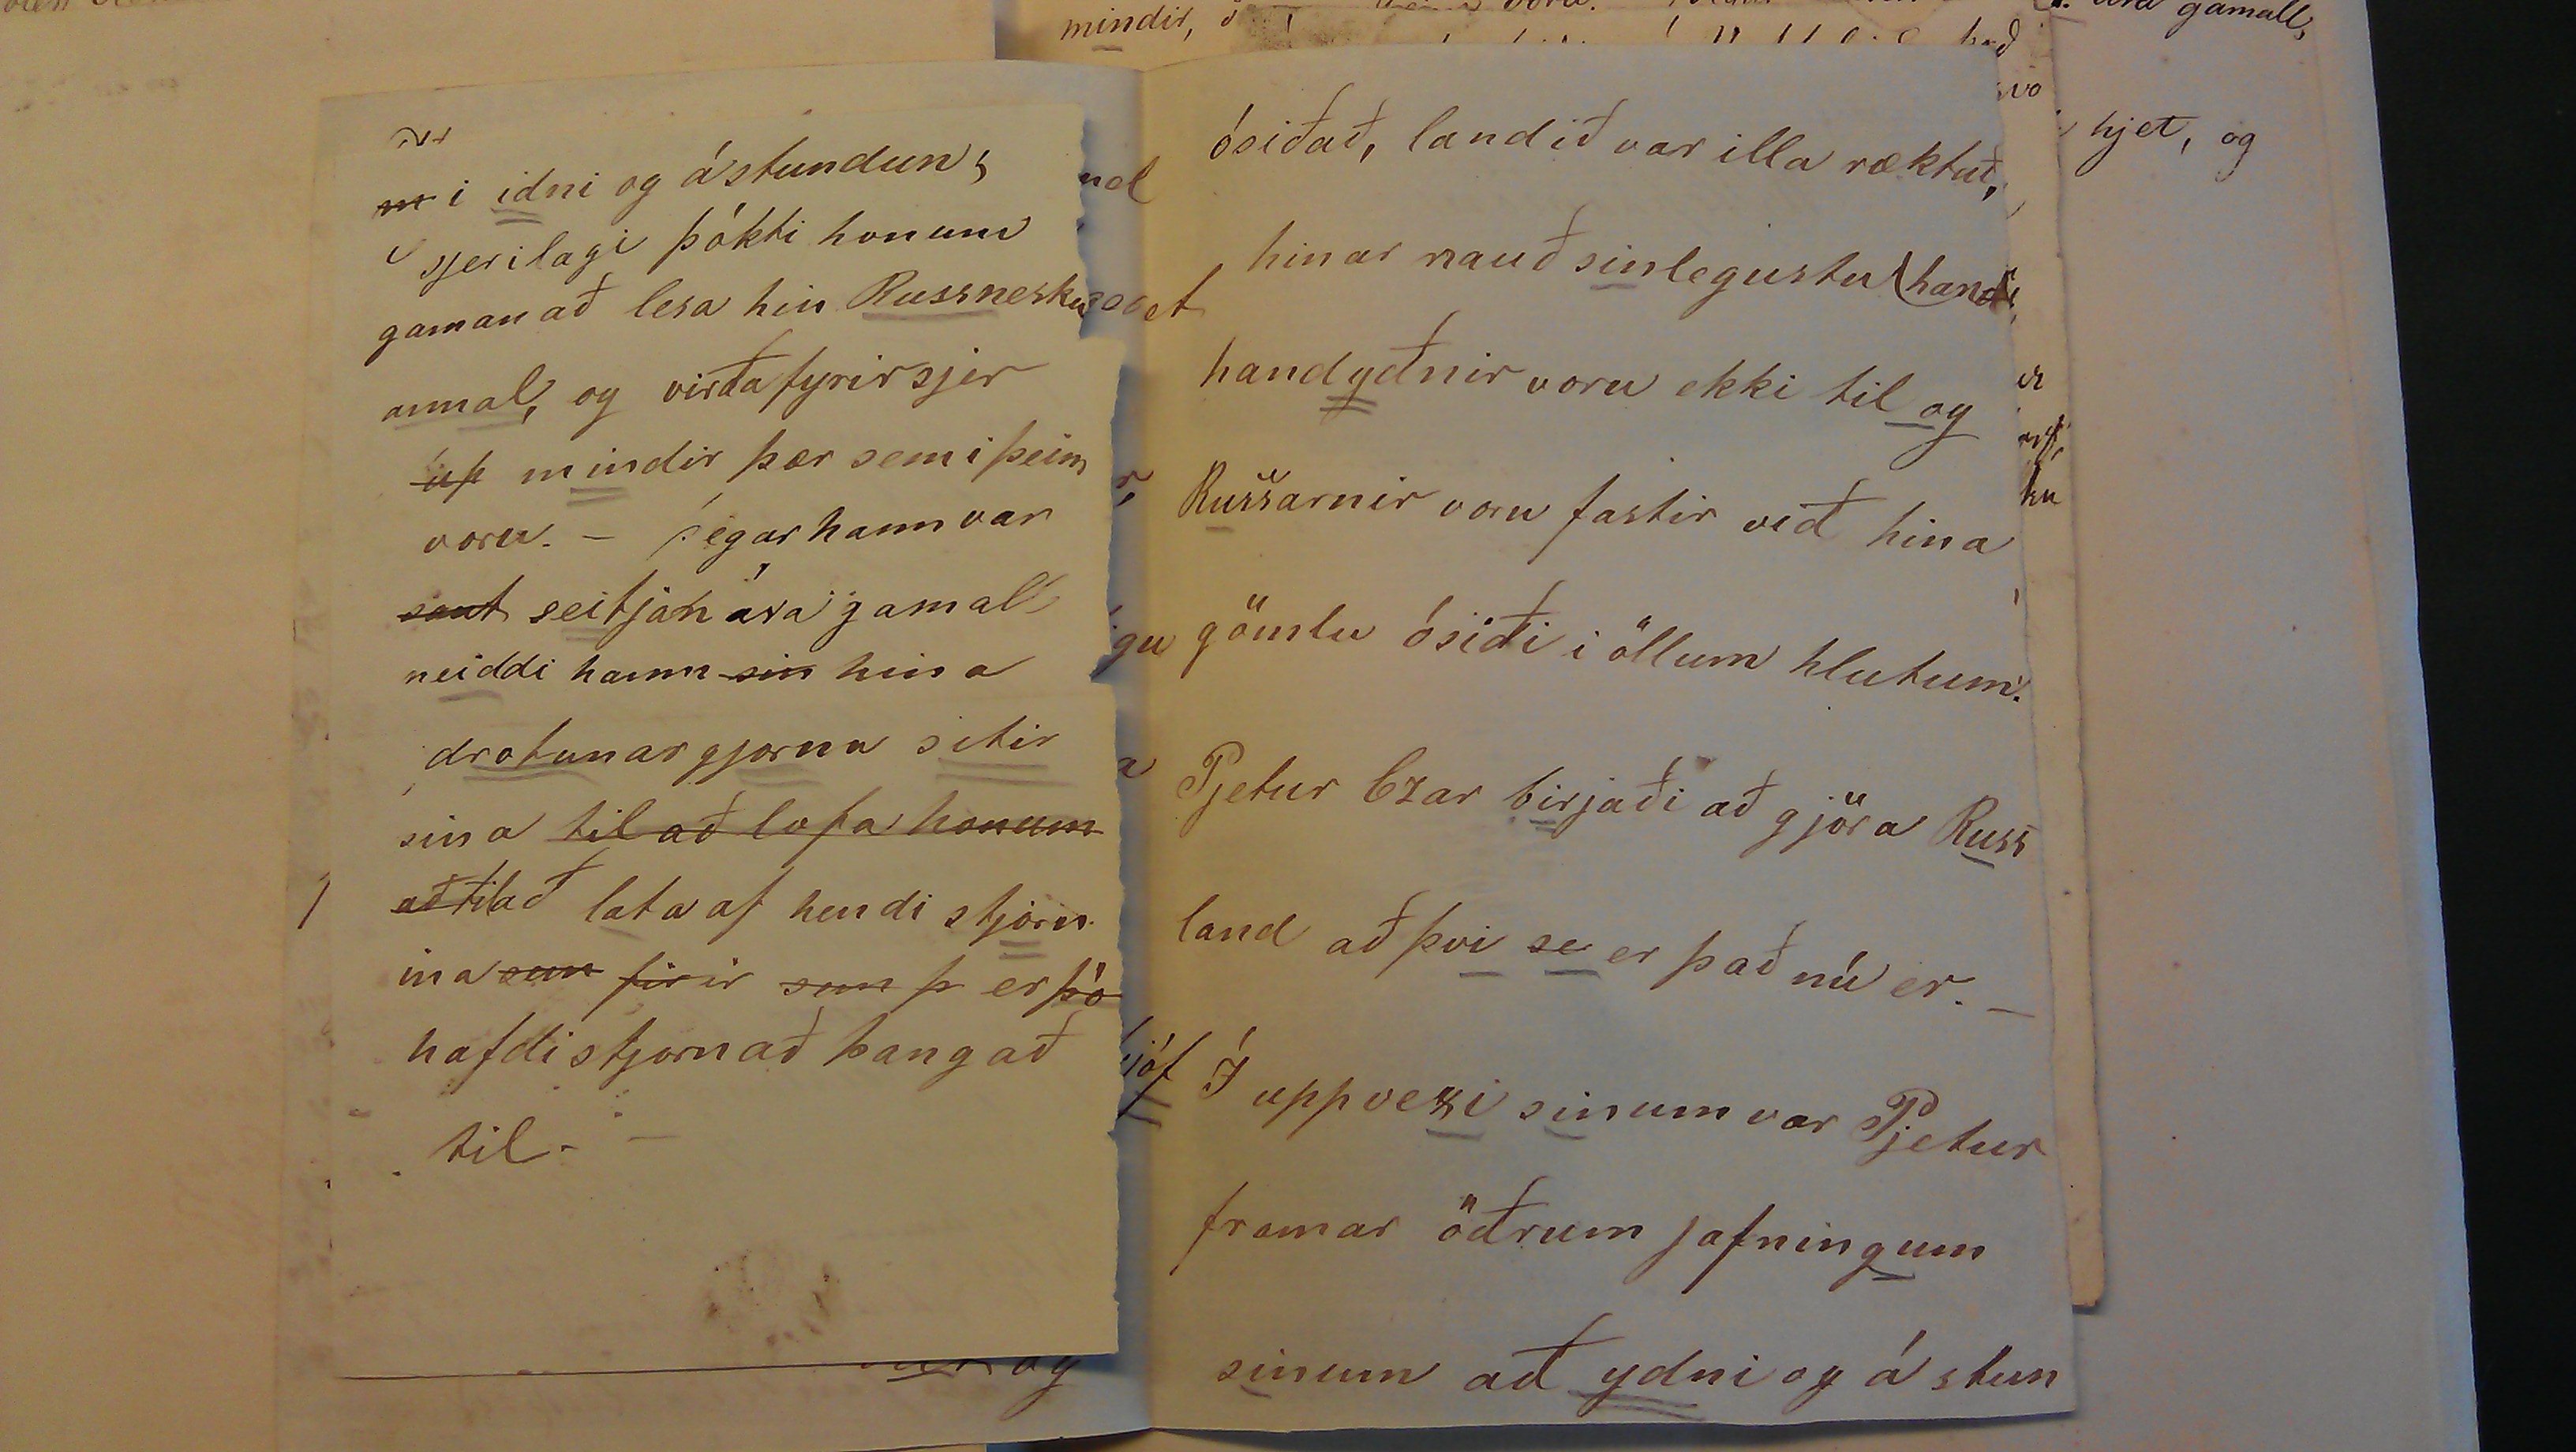 i idni og ástundun,
sjerilagi þókti honum
gaman að lesa hin Russnesku
annal, og virða fyrir sjer
up mindir þær sem i þeim
voru. — þegar hann var
sent seitján ára gamall
neiddi hann sin hina
drotunargjornu sitir
sina til að lofa honum
að til að lata af hendi stjórn
ina sem firir sem þ er þó
hafdi stjornað þangað
til. —
ósiðað, landið var illa ræktað,
hinar nauðsinlegustu hand
handyðnir voru ekki til og
Russarnir voru fastir við hina
gömlu ósiði i öllum hlutum.
Pjetur Czar birjaði að gjöra Russ
land að þvi se er það nú er. —
Í uppvexi sinum var Pjetur
framar öðrum jafningum
sinum að ydni og ástun
mindir,
voru.
ára gamall,
hjet, og
og